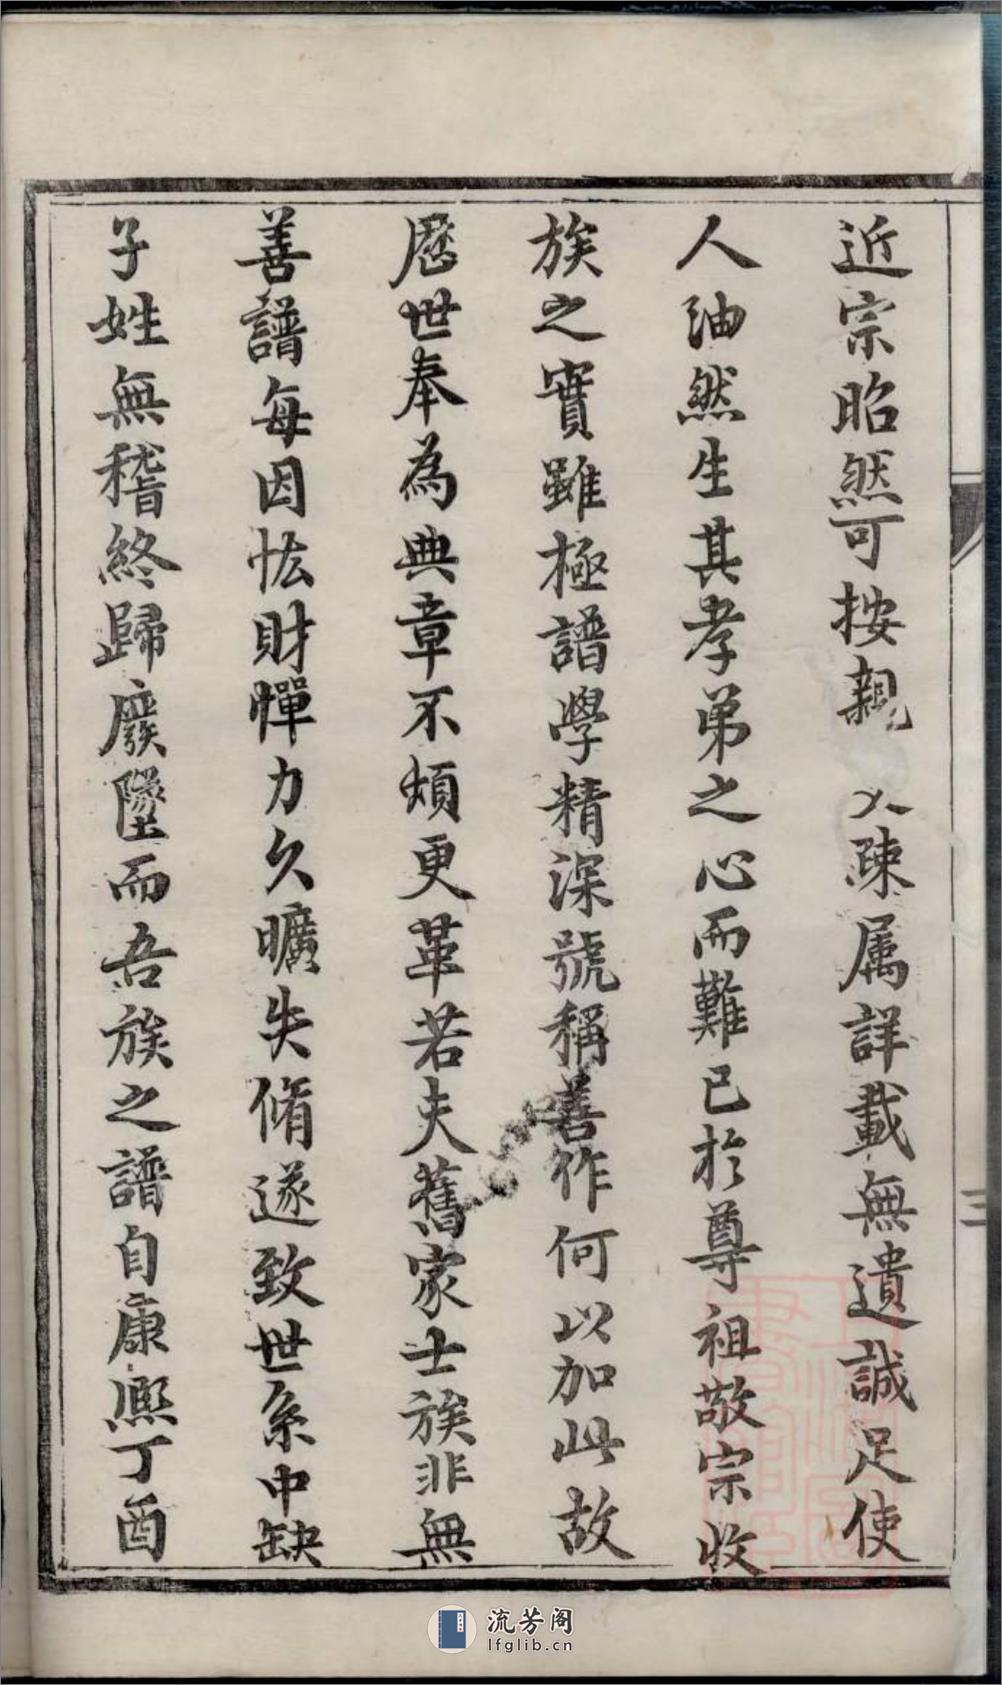 近宗昭然可按親 疎属詳載無遺誠足使
人油然生其孝弟之心而難已於尊祖敬宗收
族之實雖極譜學精深號稱善作何以加此故
歷世奉為典章不煩更革若夫舊家士族非無
善譜每因恡財憚力久曠失脩遂致世系中缺
子姓無稽終歸廢墜而吾族之譜自康熙丁酉
三
流芳阁
lfglib.cn